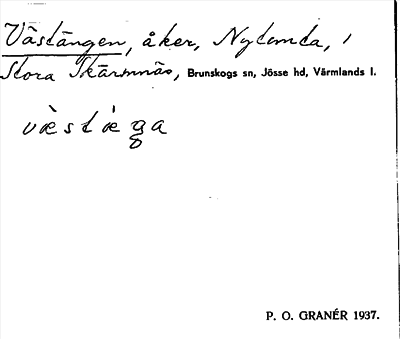 Västängen, åker, Nytomta, i
Stora Skärmnäs, Brunskogs sn, Jösse hd, Värmlands l.
væ̀stæ̀ga
P. O. GRANÉR 1937.